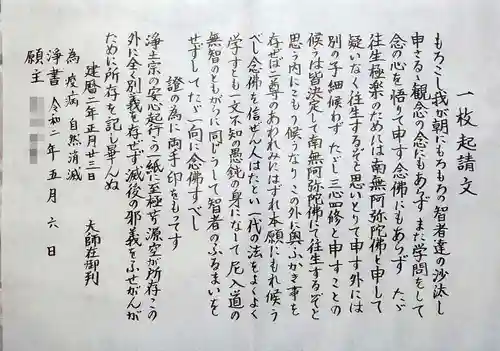 一枚起請文
もろこし我が朝にもろもろの智者達の沙汰し
申さるゝ観念の念にもあらず また学問をして
念の心を悟りて申す念佛にもあらず たゞ
往生極楽のためには南無阿弥陀佛と申して
疑いなく往生するぞと思いとりて申す外には
別の子細候わず たゞし三心四修と申すことの
候うは皆決定して南無阿弥陀佛にて往生するぞと
思う内にこもり候うなり この外に奥ふかき事を
存ぜば二尊のあわれみにはずれ本願にもれ候う
べし 念佛を信ぜん人はたとい一代の法をよくよく
学すとも一文不知の愚鈍の身になして尼入道の
無智のともがらに同じうして智者のふるまいを
せずして たゞ一向に念佛すべし
證の為に両手印をもってす
浄土宗の安心起行この一紙に至極せり 源空が所存この
外に全く別義を存ぜず 滅後の邪義をふせがんが
ために所存を記し畢んぬ
建暦二年正月廿三日
大師在御判
為 疫病 自然消滅
浄書 令和二年五月六日
願主